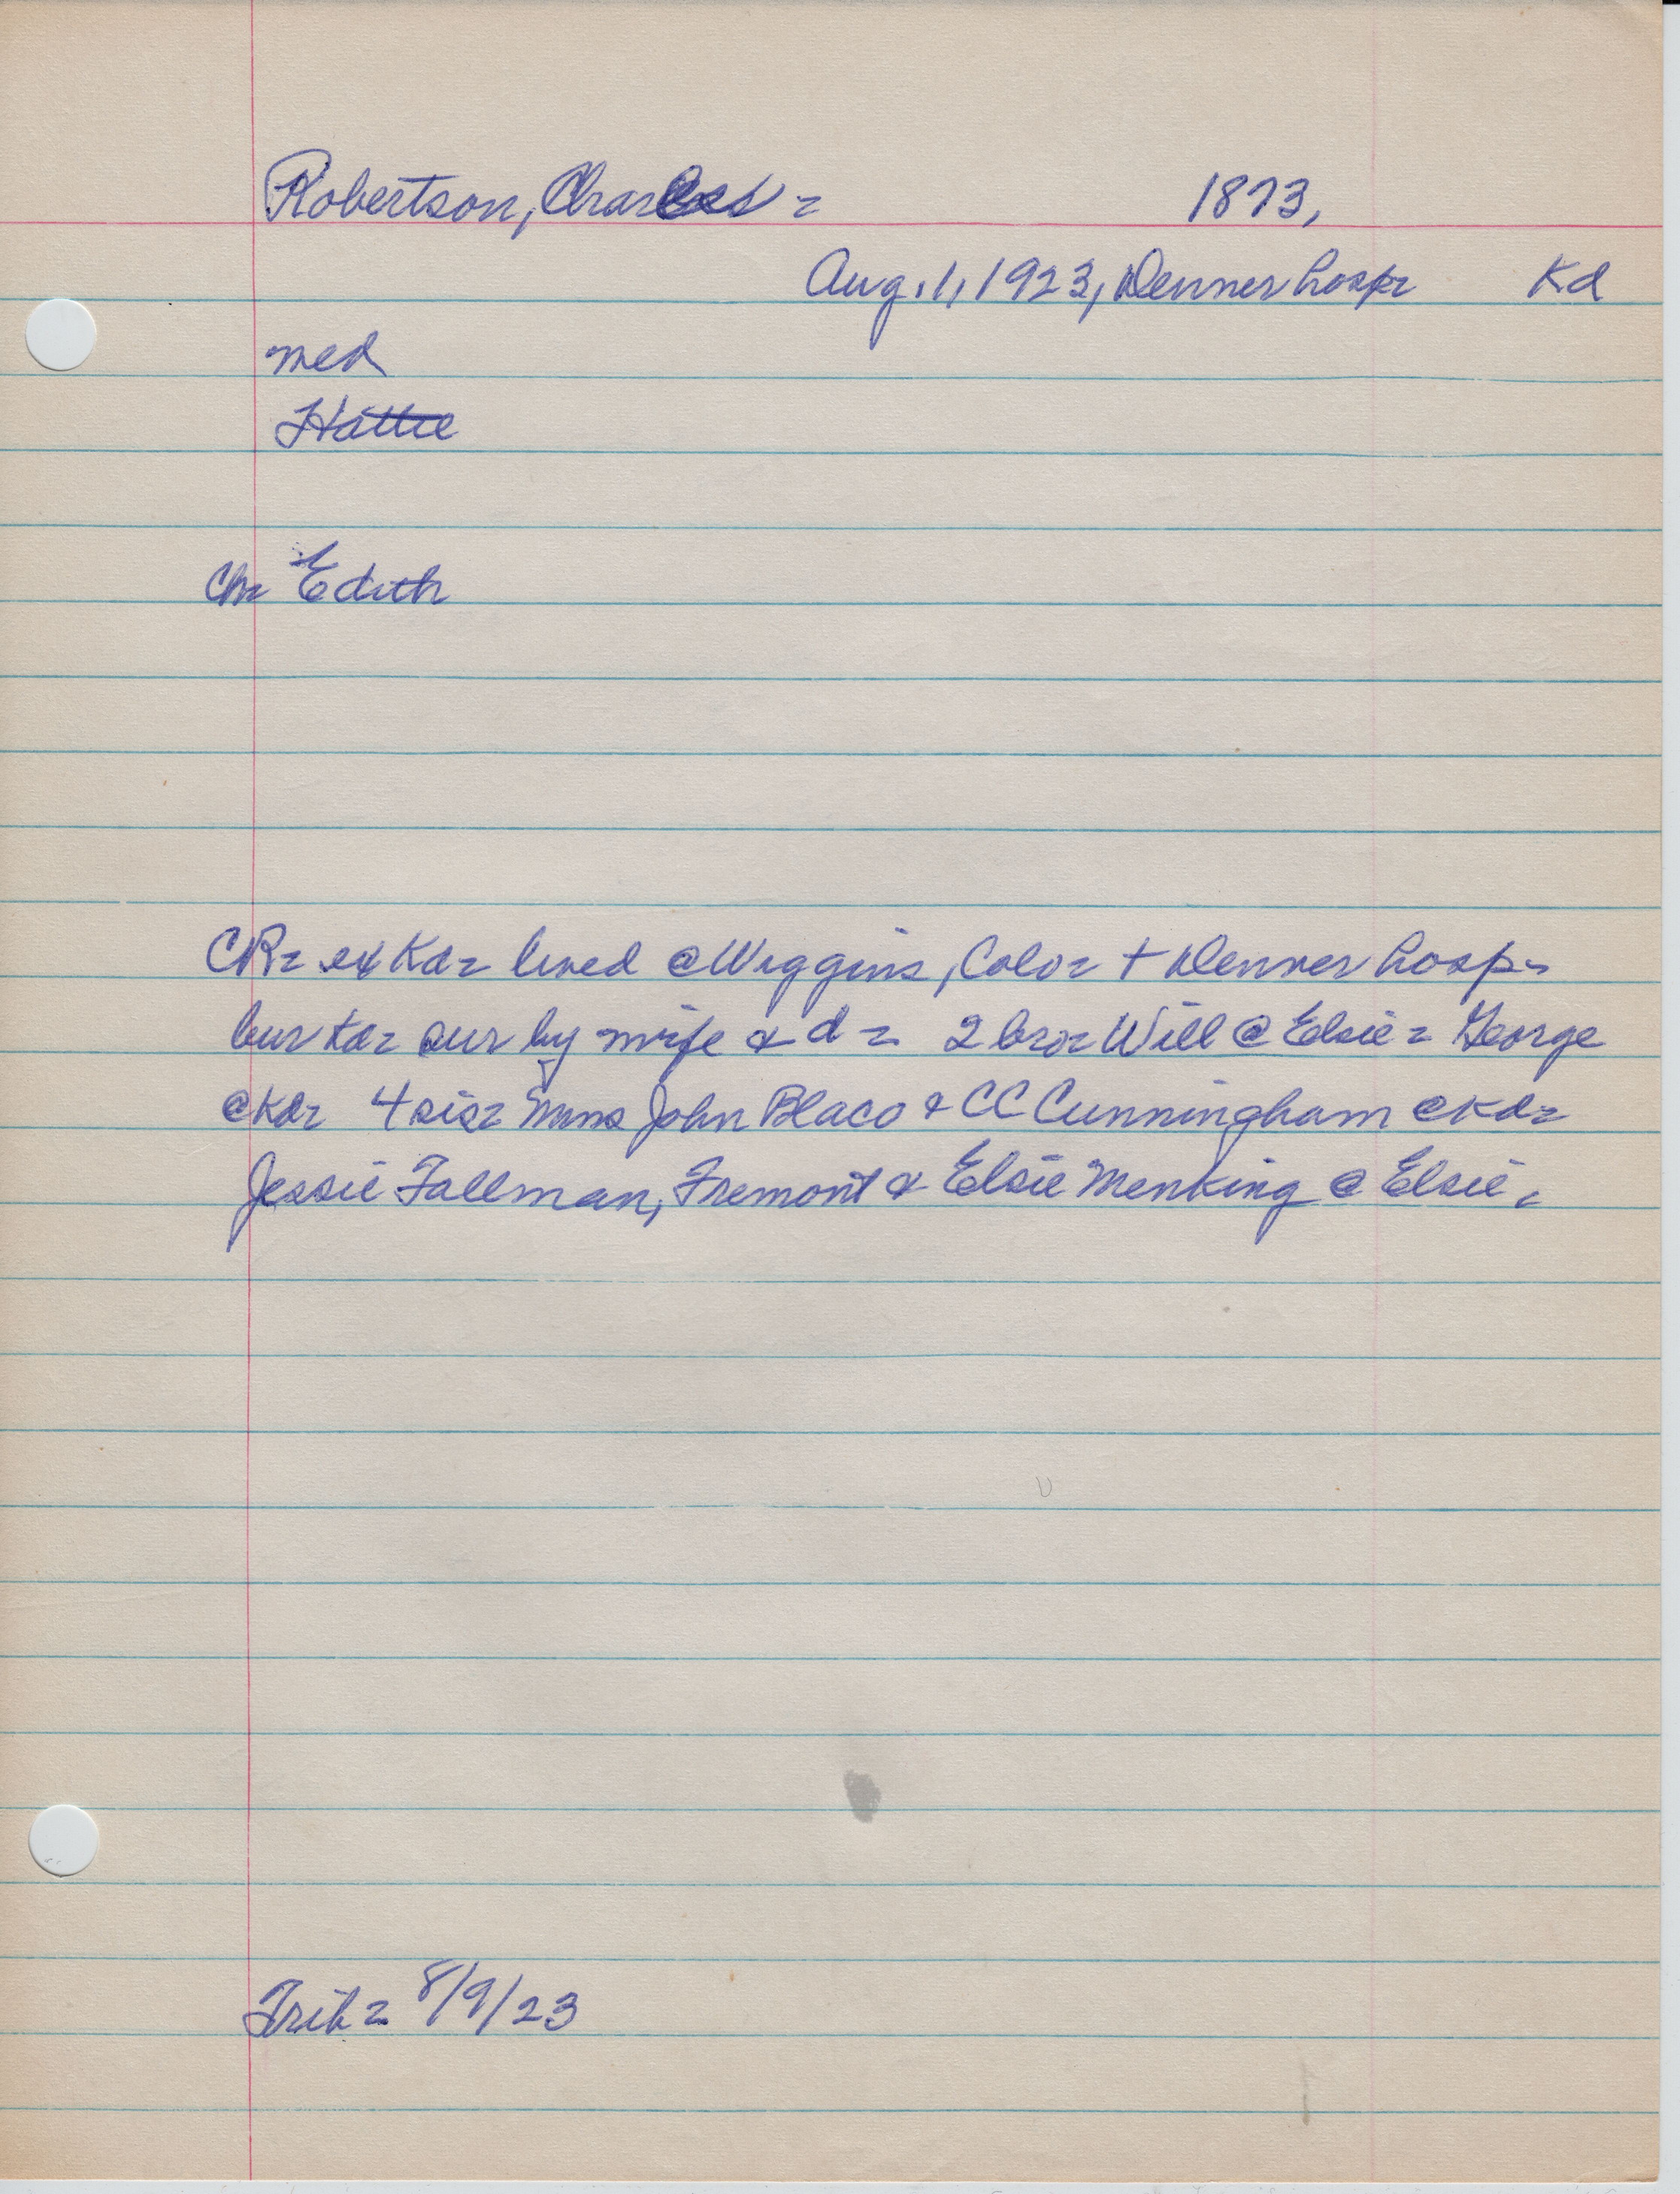 Robertson, Charles = 1873,
Aug. 1, 1923, Denver hosp= Kd
med
Hattie
Ch= Edith
CR= ex Kd= lived @ Wiggins, Colo= + Denver hosp=
bur Kd= sur by wife & d = 2 bro= Will @ Elsie = George
@ Kd= 4 sis= Mms John Blaco & CC Cunningham @ Kd=
Jessie Tallman, Fremont & Elsie Menking @ Elsie.
Trib = 8/9/23